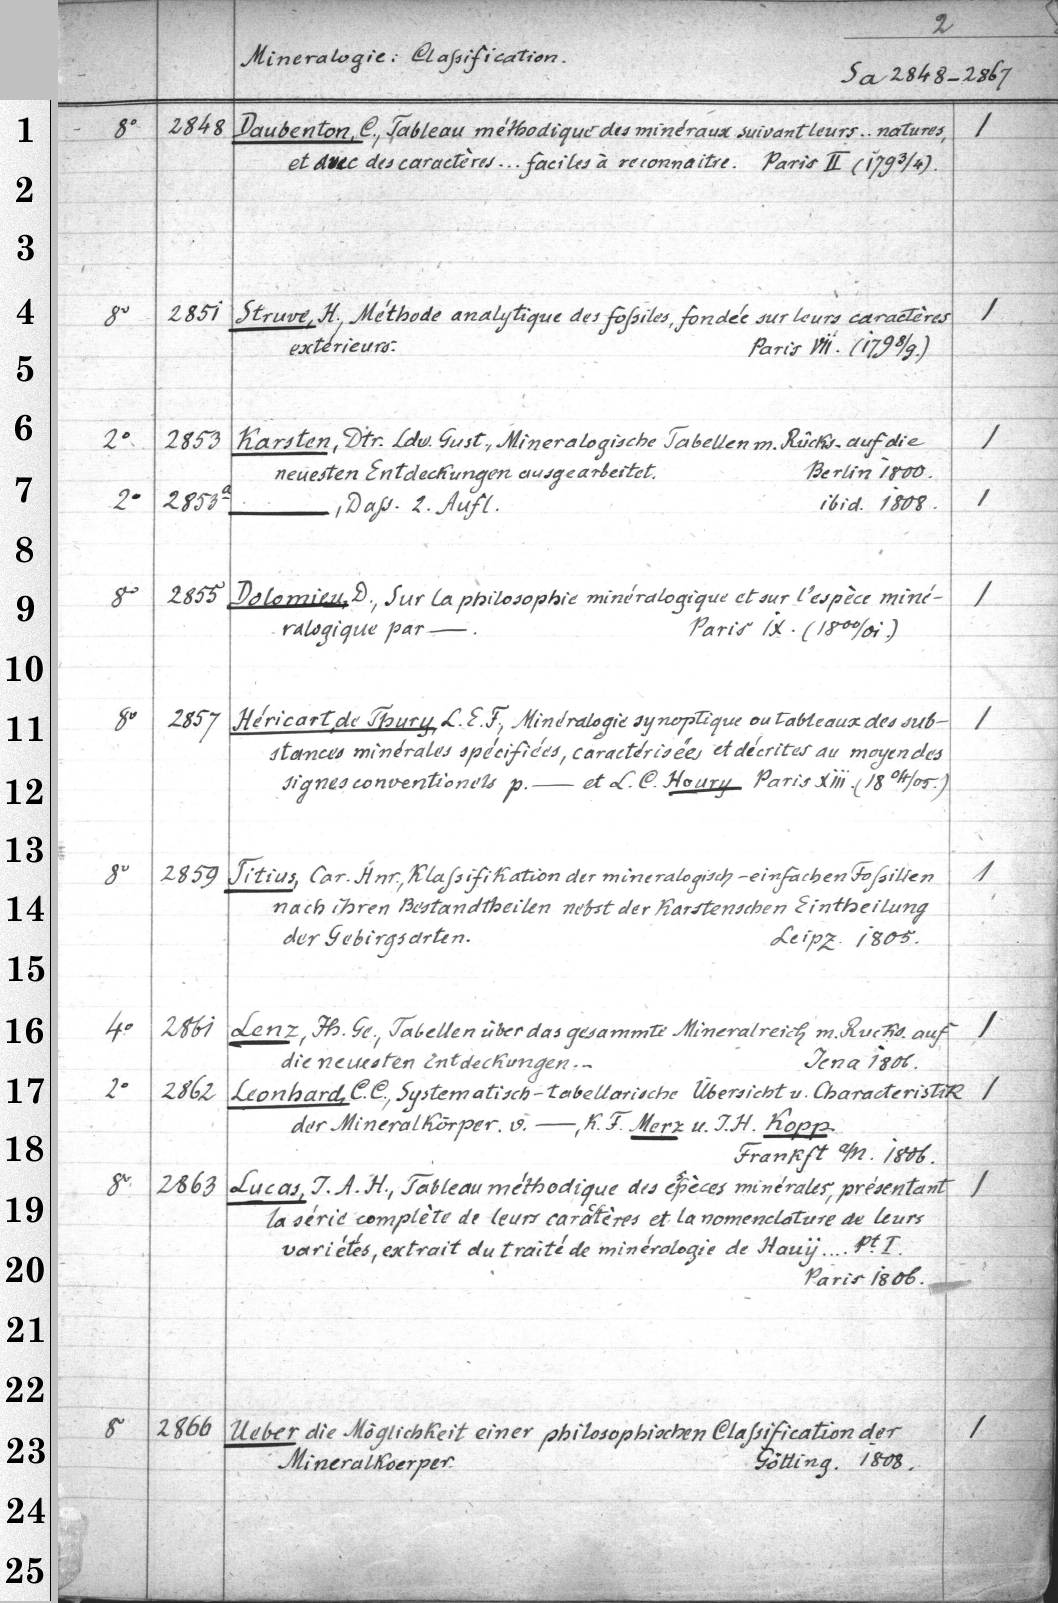 2
Mineralogie: Claſsification.
Sa 2848-2867
1 8° 2848 Daubenton, C., Tableau méthodique des minéraux suivant leurs .. natures, 1
et avec des caractères ... faciles à reconnaitre. Paris II (1793/4).
2
3
4 8° 2851 Struve, H., Méthode analytique des foſsiles, fondée sur leurs caractères 1
extérieurs. Paris VII. (1798/9.)
5
6 2° 2853 Karsten, Dtr. Ldw. Gust., Mineralogische Tabellen m. Rücks. auf die 1
neuesten Entdeckungen ausgearbeitet. Berlin 1800.
7 2° 2853a ———, Daſs. 2. Aufl. ibid. 1808. 1
8
9 8° 2855 Dolomieu, D., Sur la philosophie minéralogique et sur l'espèce miné- 1
ralogique par —. Paris IX. (1800/01.)
10
11 8° 2857 Héricart de Thury, L. E. F., Minéralogie synoptique ou tableaux des sub- 1
stances minérales spécifiées, caractérisées et décrites au moyen des
12 signes conventionels p. — et L. C. Houry Paris XIII. (1804/05.)
13
8° 2859 Titius, Car. Hnr., Klaſsifikation der mineralogisch-einfachen Foſsilien 1
14 nach ihren Bestandtheilen nebst der Karstenschen Eintheilung
der Gebirgsarten. Leipz. 1805.
15
16 4° 2861 Lenz, Jh. Ge., Tabellen über das gesammte Mineralreich m. Rucks. auf 1
die neuesten Entdeckungen... Jena 1806.
17 2° 2862 Leonhard, C. C., Systematisch-tabellarische Übersicht u. Characteristik 1
der Mineralkörper. v. —, K. F. Merz u. J. H. Kopp.
18 Frankft a/M. 1806.
8° 2863 Lucas, J. A. H., Tableau méthodique des espèces minérales, présentant 1
19 la série complète de leurs caractères et la nomenclature de leurs
variétés, extrait du traité de minéralogie de Hauÿ.... Pt I.
20 Paris 1806.
21
22
23 8° 2866 Ueber die Möglichkeit einer philosophischen Claſsification der 1
Mineralkoerper. Götting. 1808.
24
25